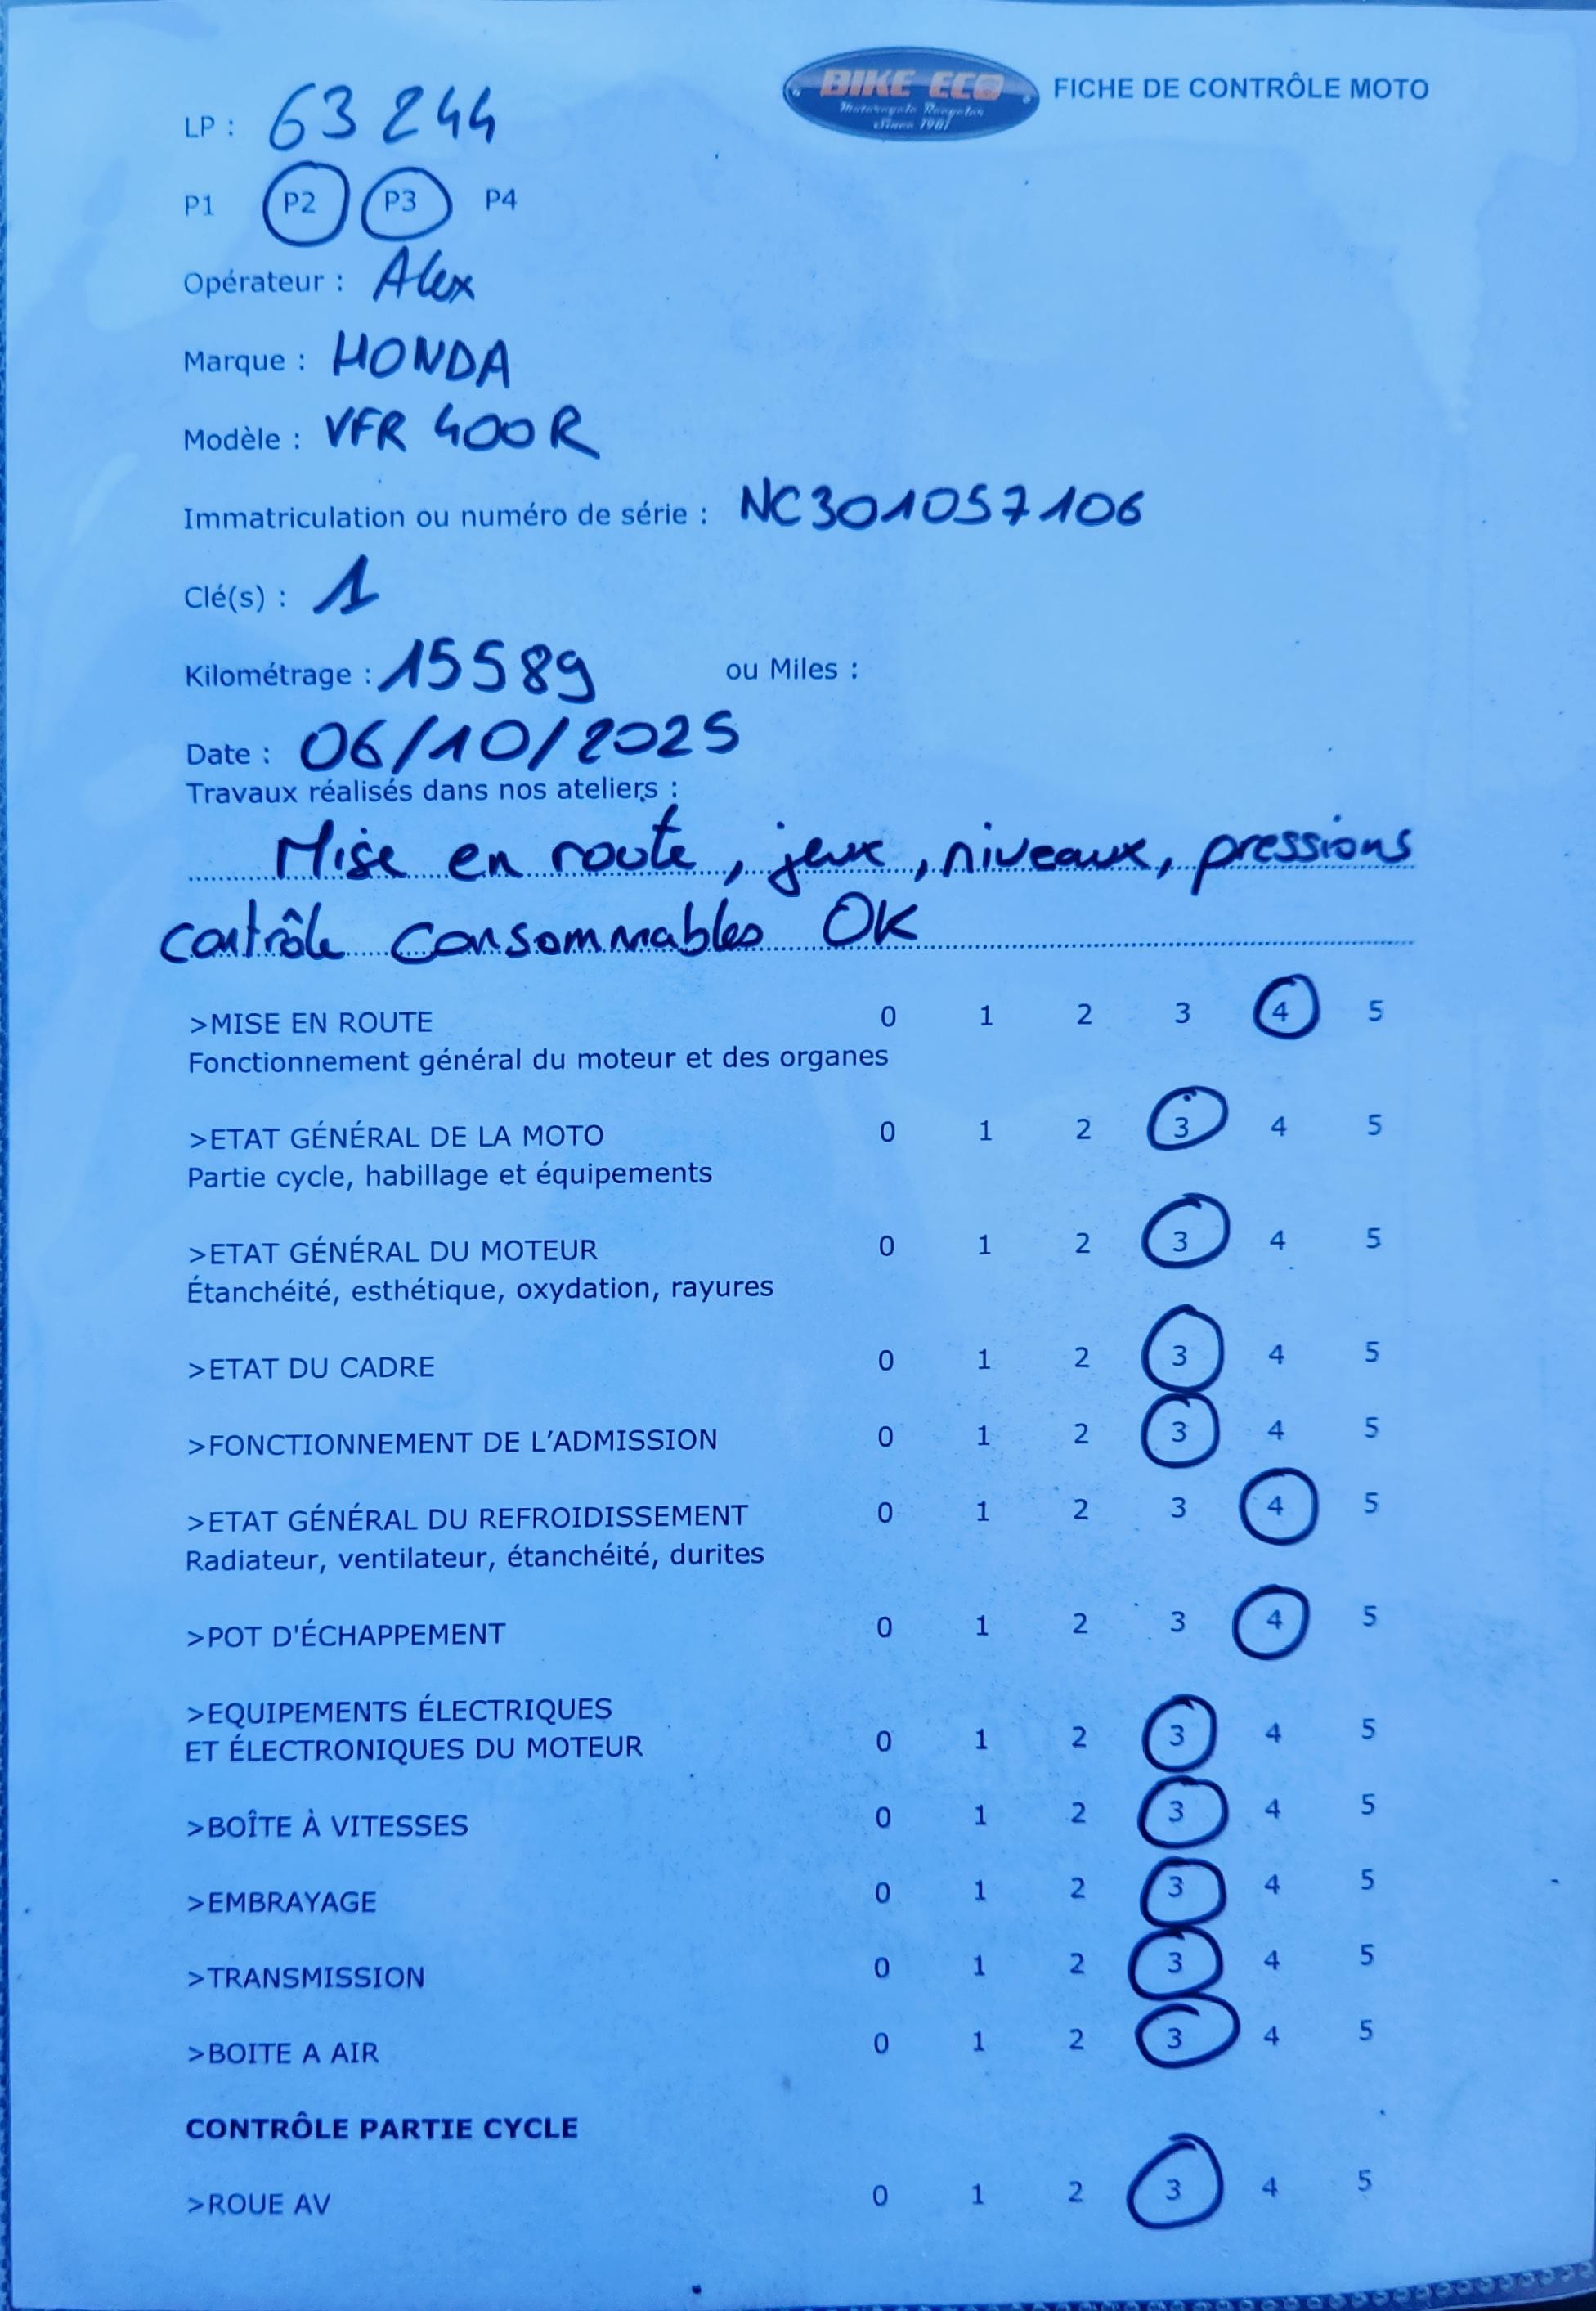 BIKE ECO
Motorcycle Recycler
Since 1981
FICHE DE CONTRÔLE MOTO
LP : 63244
P1 P2 P3 P4
Opérateur : Alex
Marque : HONDA
Modèle : VFR 400R
Immatriculation ou numéro de série : NC301057106
Clé(s) : 1
Kilométrage : 15589 ou Miles :
Date : 06/10/2025
Travaux réalisés dans nos ateliers :
Mise en route, jeux, niveaux, pressions
contrôle consommables OK
>MISE EN ROUTE 0 1 2 3 4 5
Fonctionnement général du moteur et des organes
>ETAT GÉNÉRAL DE LA MOTO 0 1 2 3 4 5
Partie cycle, habillage et équipements
>ETAT GÉNÉRAL DU MOTEUR 0 1 2 3 4 5
Étanchéité, esthétique, oxydation, rayures
>ETAT DU CADRE 0 1 2 3 4 5
>FONCTIONNEMENT DE L'ADMISSION 0 1 2 3 4 5
>ETAT GÉNÉRAL DU REFROIDISSEMENT 0 1 2 3 4 5
Radiateur, ventilateur, étanchéité, durites
>POT D'ÉCHAPPEMENT 0 1 2 3 4 5
>EQUIPEMENTS ÉLECTRIQUES
ET ÉLECTRONIQUES DU MOTEUR 0 1 2 3 4 5
>BOÎTE À VITESSES 0 1 2 3 4 5
>EMBRAYAGE 0 1 2 3 4 5
>TRANSMISSION 0 1 2 3 4 5
>BOITE A AIR 0 1 2 3 4 5
CONTRÔLE PARTIE CYCLE
>ROUE AV 0 1 2 3 4 5